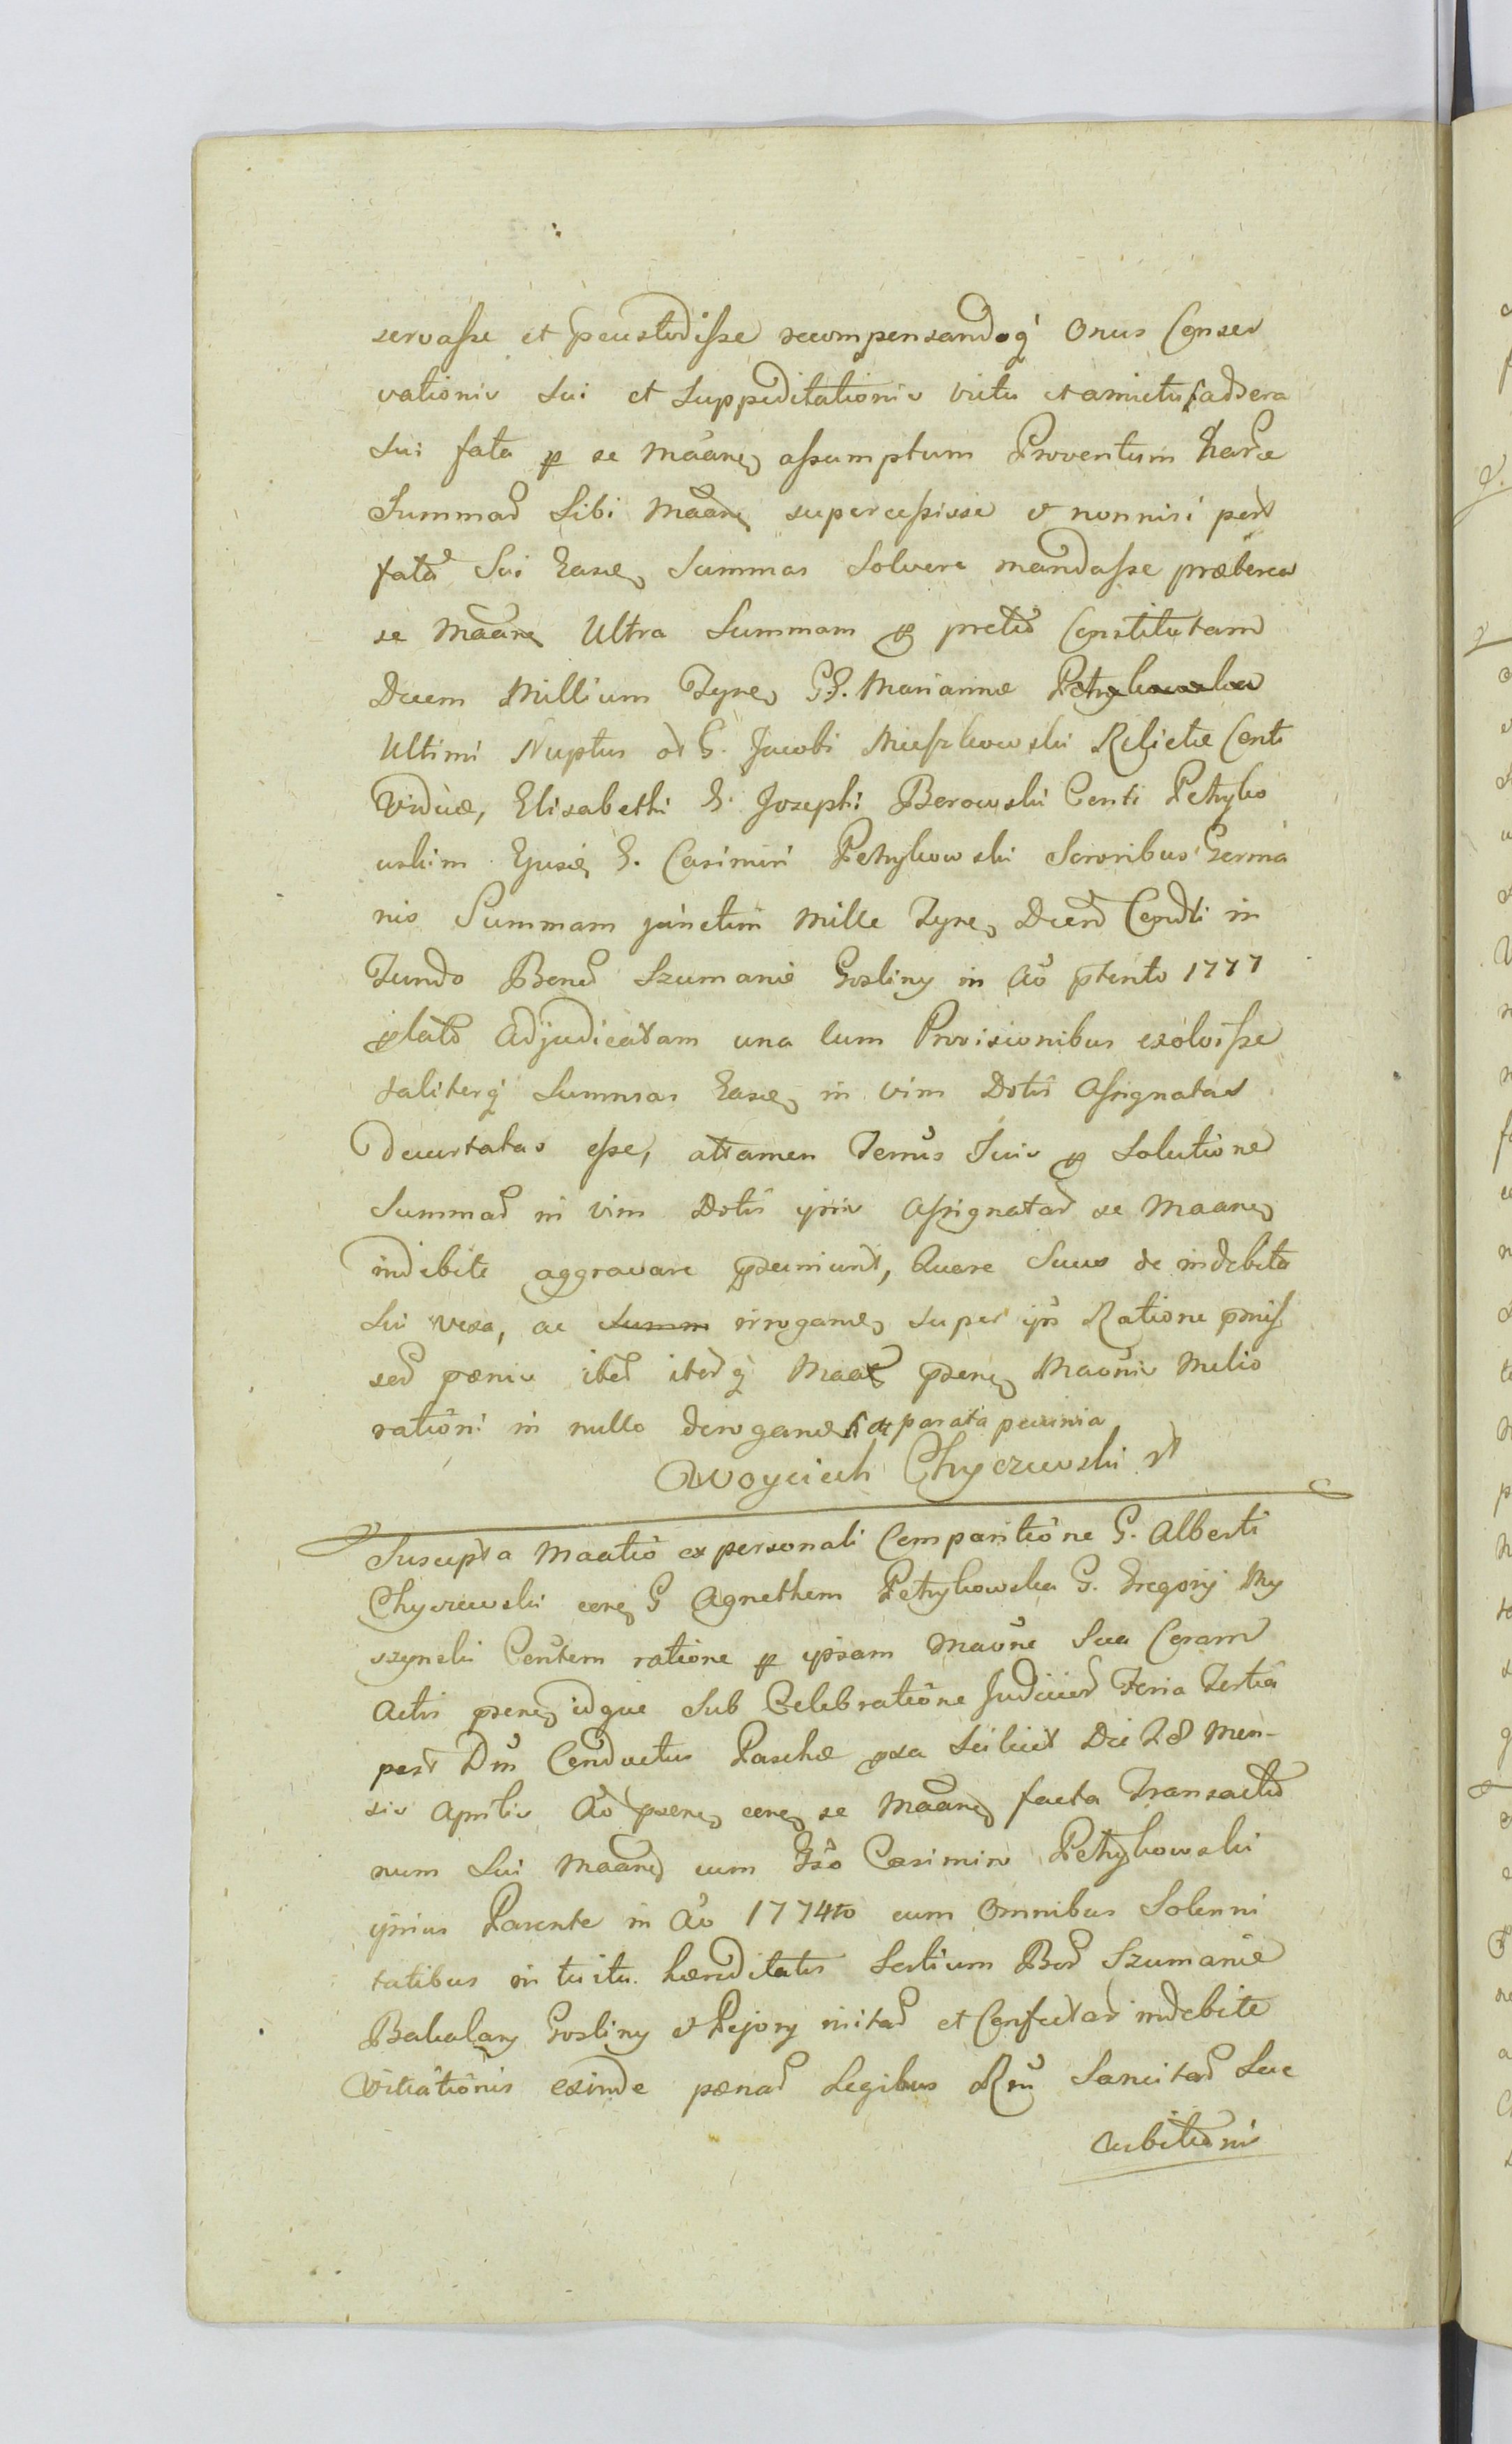 servasse et pcustodisse recompensandoq́ Onus Conser
vationis sui et suppeditationis victu et amictu ad sera
sui fata p se Mãane assumptum Proventum harũe
Summaɫ Sibi Mãane supercessisse et nonnisi post
fata Sui Easde Summas Solvere mandasse præterea
se Mãane Ultra Summam p pretio Constitutam
Decem Millium Tyne GG. Marianne Petrykowskie
Ultimi Nuptus ot G. Jacobi Mieszkowski Relictæ Conti
Viduæ, Elisabethi G. Josephi Berowski Conti Petryko
uskim Ejusde G. Casimiri Petrykowski Sororibus Germa
nis Summam junctim Mille Tyne Decrõ Condti in
Fundo Bonoɫ Szumanie Gosliny in Aõ ptento 1777
plato Adjudicatam una Cum Provisionibus exolvisse
taliterq́ Summas Easde in vim Dotis Assignatas
Decurtatas esse, attamen Temũs Suis p Solutione
Summaɫ in vim Dotis ipsis Assignataɫ se Maane
indebite aggravare psumunt, Quare Suus de indebita
Sui vexa, ac Summ irrogande super ipsis Ratione pmis
soɫ pænis iteɫ iteɫq́ Maat psene Maõnis Melio
rationi in nullo derogande parata pecunia
Woyciech Chyczewski
Suscepta Maatio ex personali Comparitione G. Alberti
Chyczewski cone G Agnethem Petrykowska G. Gregorij My
szynski Contem ratione p ipsam Maõne Sua Coram
Actis psene idque Sub Celebratione Judicioɫ Feria Tertia
post Dm̃ Conductus Paschæ pxa Scilicet Die 28 Men-
sis Aprilis Aõ psene cone se Mãane facta Transactio
num Sui Maane cum Gso Casimiro Petrykowski
ipsius Parente in Aõ 1774to cum Omnibus Solenni
tatibus in tuitu hæreditatis Sortium Boɫ Szumanie
Bakalary Gosliny et Pejory initaɫ et Confectaɫ indebite
Vitiationis exinde pænaɫ Legibus Rni Sancitaɫ Suc
cubitionis